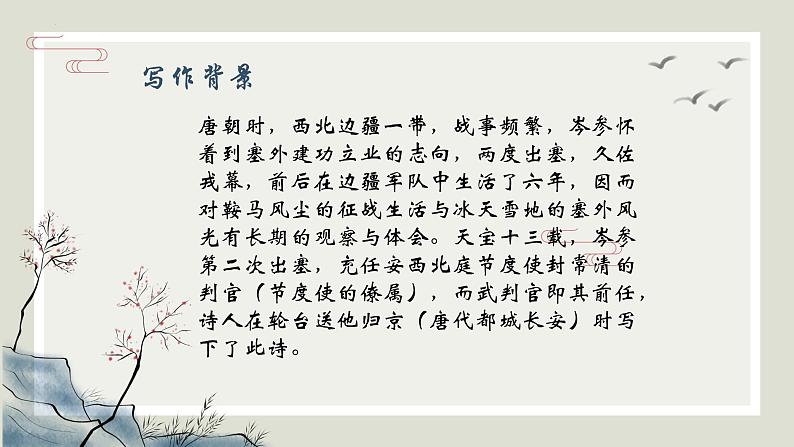 写作背景
唐朝时，西北边疆一带，战事频繁，岑参怀
看到塞外建功立业的志向，两度出塞，久佐
戎幕，前后在边疆军队中生活了六年，因而
对鞍马风尘的征战生活与冰天雪地的塞外风
光有长期的观察与体会。天宝十三载，岑参
第二次出塞，充任安西北庭节度使封常清的
判官（节度使的僚属），而武判官即其前任，
诗人在轮台送他归京（唐代都城长安）时写
下了此诗。